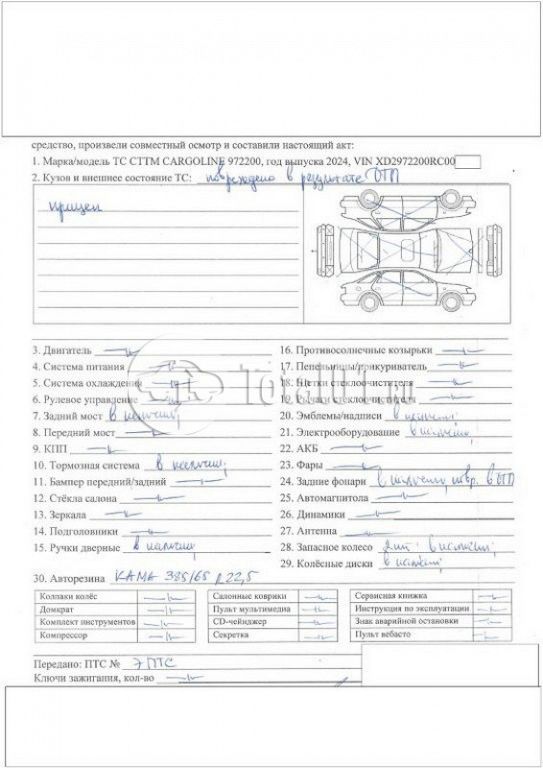 средство, произвели совместный осмотр и составили настоящий акт:
1. Марка/модель ТС СТТМ CARGOLINE 972200, год выпуска 2024, VIN XD2972200RC00
2. Кузов и внешнее состояние ТС: повреждено в результате ДТП
прицеп
3. Двигатель
4. Система питания
5. Система охлаждения
6. Рулевое управление
7. Задний мост в наличии
8. Передний мост
9. КПП
10. Тормозная система в наличии
11. Бампер передний/задний
12. Стёкла салона
13. Зеркала
14. Подголовники
15. Ручки дверные в наличии
16. Противосолнечные козырьки
17. Пепельницы/прикуриватель
18. Щетки стеклоочистителя
19. Рычаги стеклоочистителя
20. Эмблемы/надписи в наличии
21. Электрооборудование в наличии
22. АКБ
23. Фары
24. Задние фонари в наличии, повр. в ДТП
25. Автомагнитола
26. Динамики
27. Антенна
28. Запасное колесо в наличии
29. Колёсные диски в наличии
30. Авторезина КАМА 385/65 R 22,5
Колпаки колёс Салонные коврики Сервисная книжка
Домкрат Пульт мультимедиа Инструкция по эксплуатации
Комплект инструментов CD-чейнджер Знак аварийной остановки
Компрессор Секретка Пульт вебасто
Передано: ПТС № ЭПТС
Ключи зажигания, кол-во